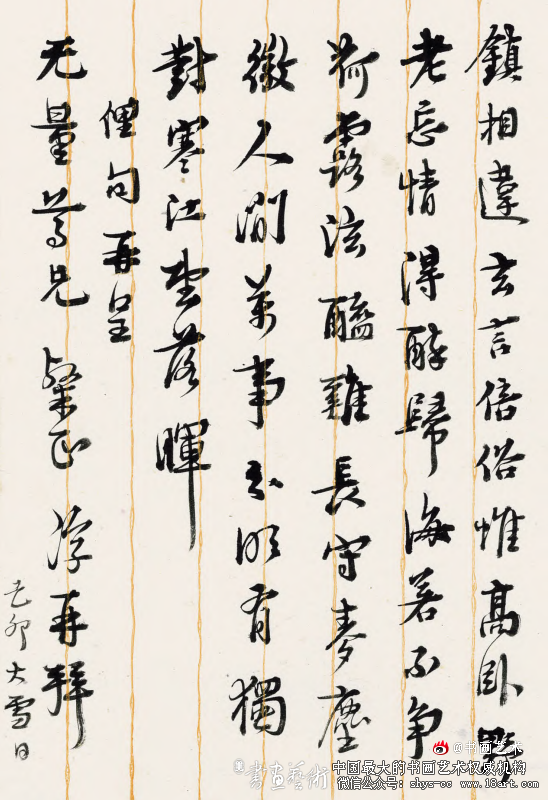 鎮相違玄言倍俗惟高卧
老忘情得醉歸海若不爭
荷露泫醯雞長守麥塵
微人間萬事有獨
對寒江落暉
俚句再呈
无量尊兄 粲正 浮再拜
己卯大雪日
@书画艺术
書畫藝術
中国最大的书画艺术权威机构
微信公众号：shys-cc www.18art.com